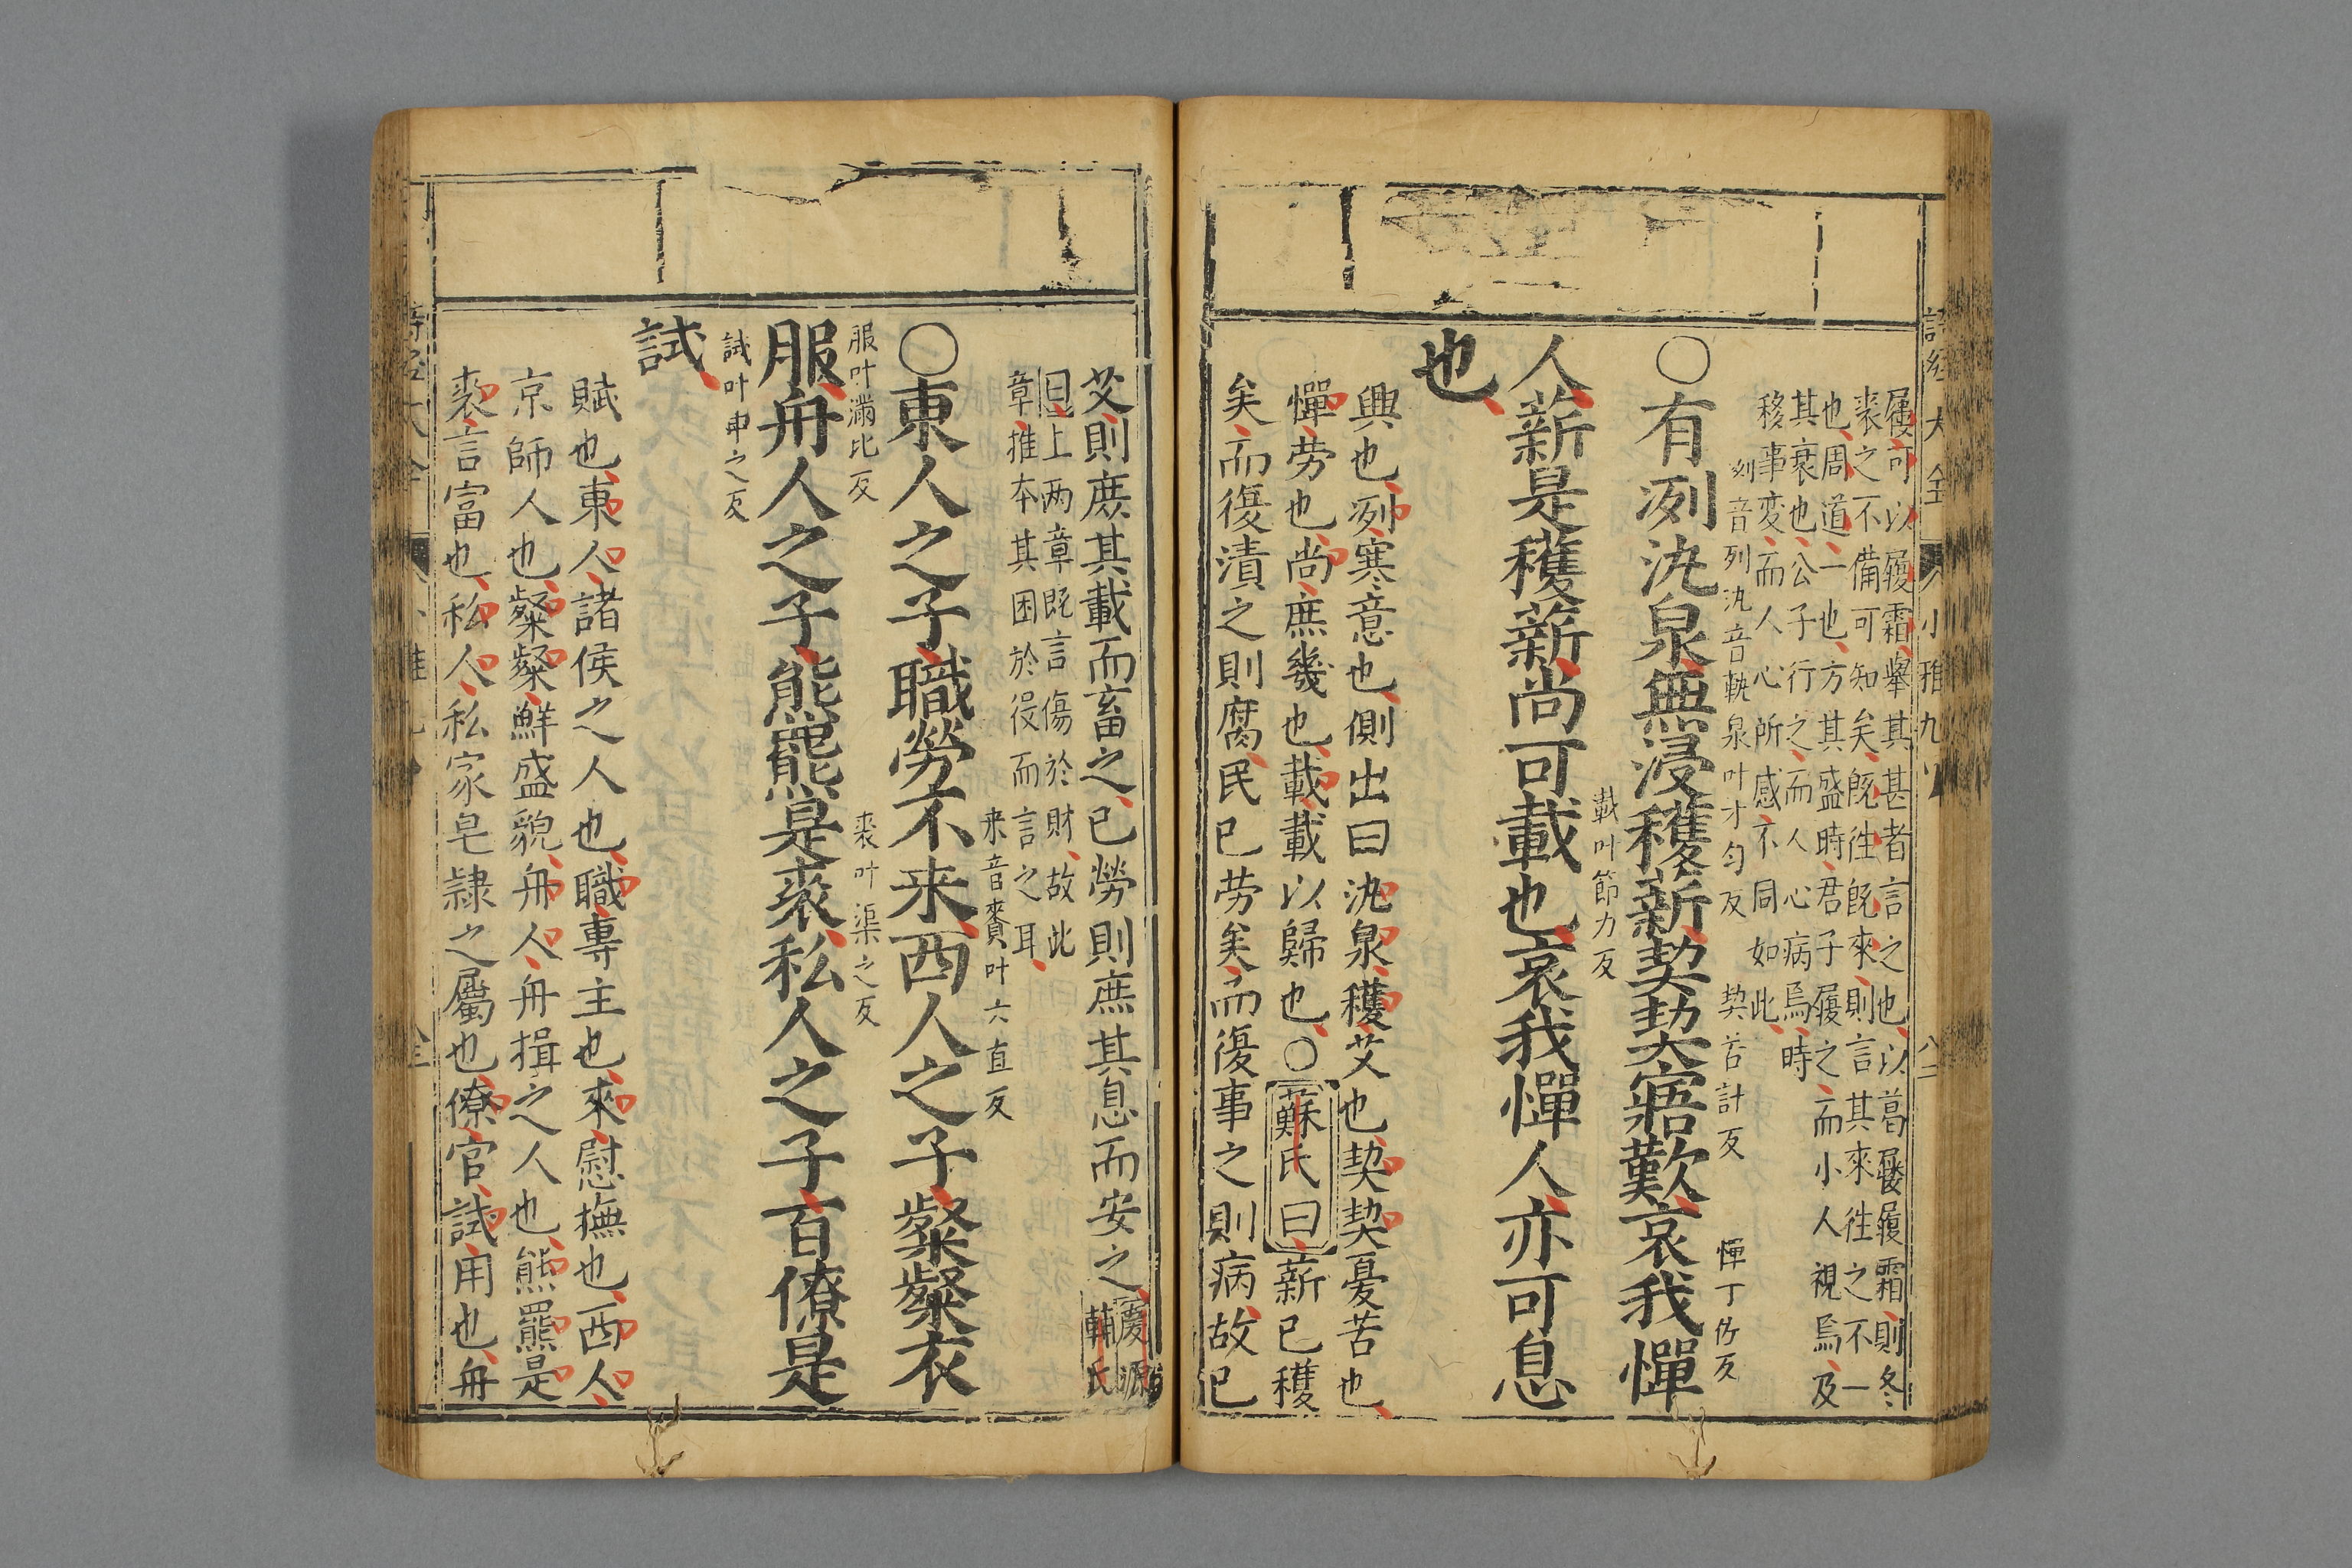 詩經大全 小雅九 八二
屨可以履霜舉其甚者言之也以葛屨履霜則冬
裘之不備可知矣旣往旣來則言其來往之不一
也周道一也方其盛時君子履之而小人視焉及
其衰也公子行之而人心病焉時
移事変而人心所感不同如此
冽音列氿音軌泉叶才勻反 契苦計反 憚丁佐反
○有冽氿泉無浸穫薪契契寤歎哀我憚
載叶節力反
人薪是穫薪尚可載也哀我憚人亦可息
也
興也冽寒意也側出曰氿泉穫艾也契契憂苦也
憚劳也尚庶幾也載載以歸也○蘇氏曰薪已穫
矣而復漬之則腐民已劳矣而復事之則病故已
艾則庶其載而畜之已勞則庶其息而安之慶源輔氏
曰上两章既言傷於財故此
章推本其困於役而言之耳
来音賚叶六直反
○東人之子職勞不来西人之子粲粲衣
服叶蒲比反 裘叶渠之反
服舟人之子熊羆是裘私人之子百僚是
試叶申之反
試
賦也東人諸侯之人也職專主也來慰撫也西人
京師人也粲粲鮮盛貌舟人舟楫之人也熊羆是
裘言富也私人私家皂隷之屬也僚官試用也舟